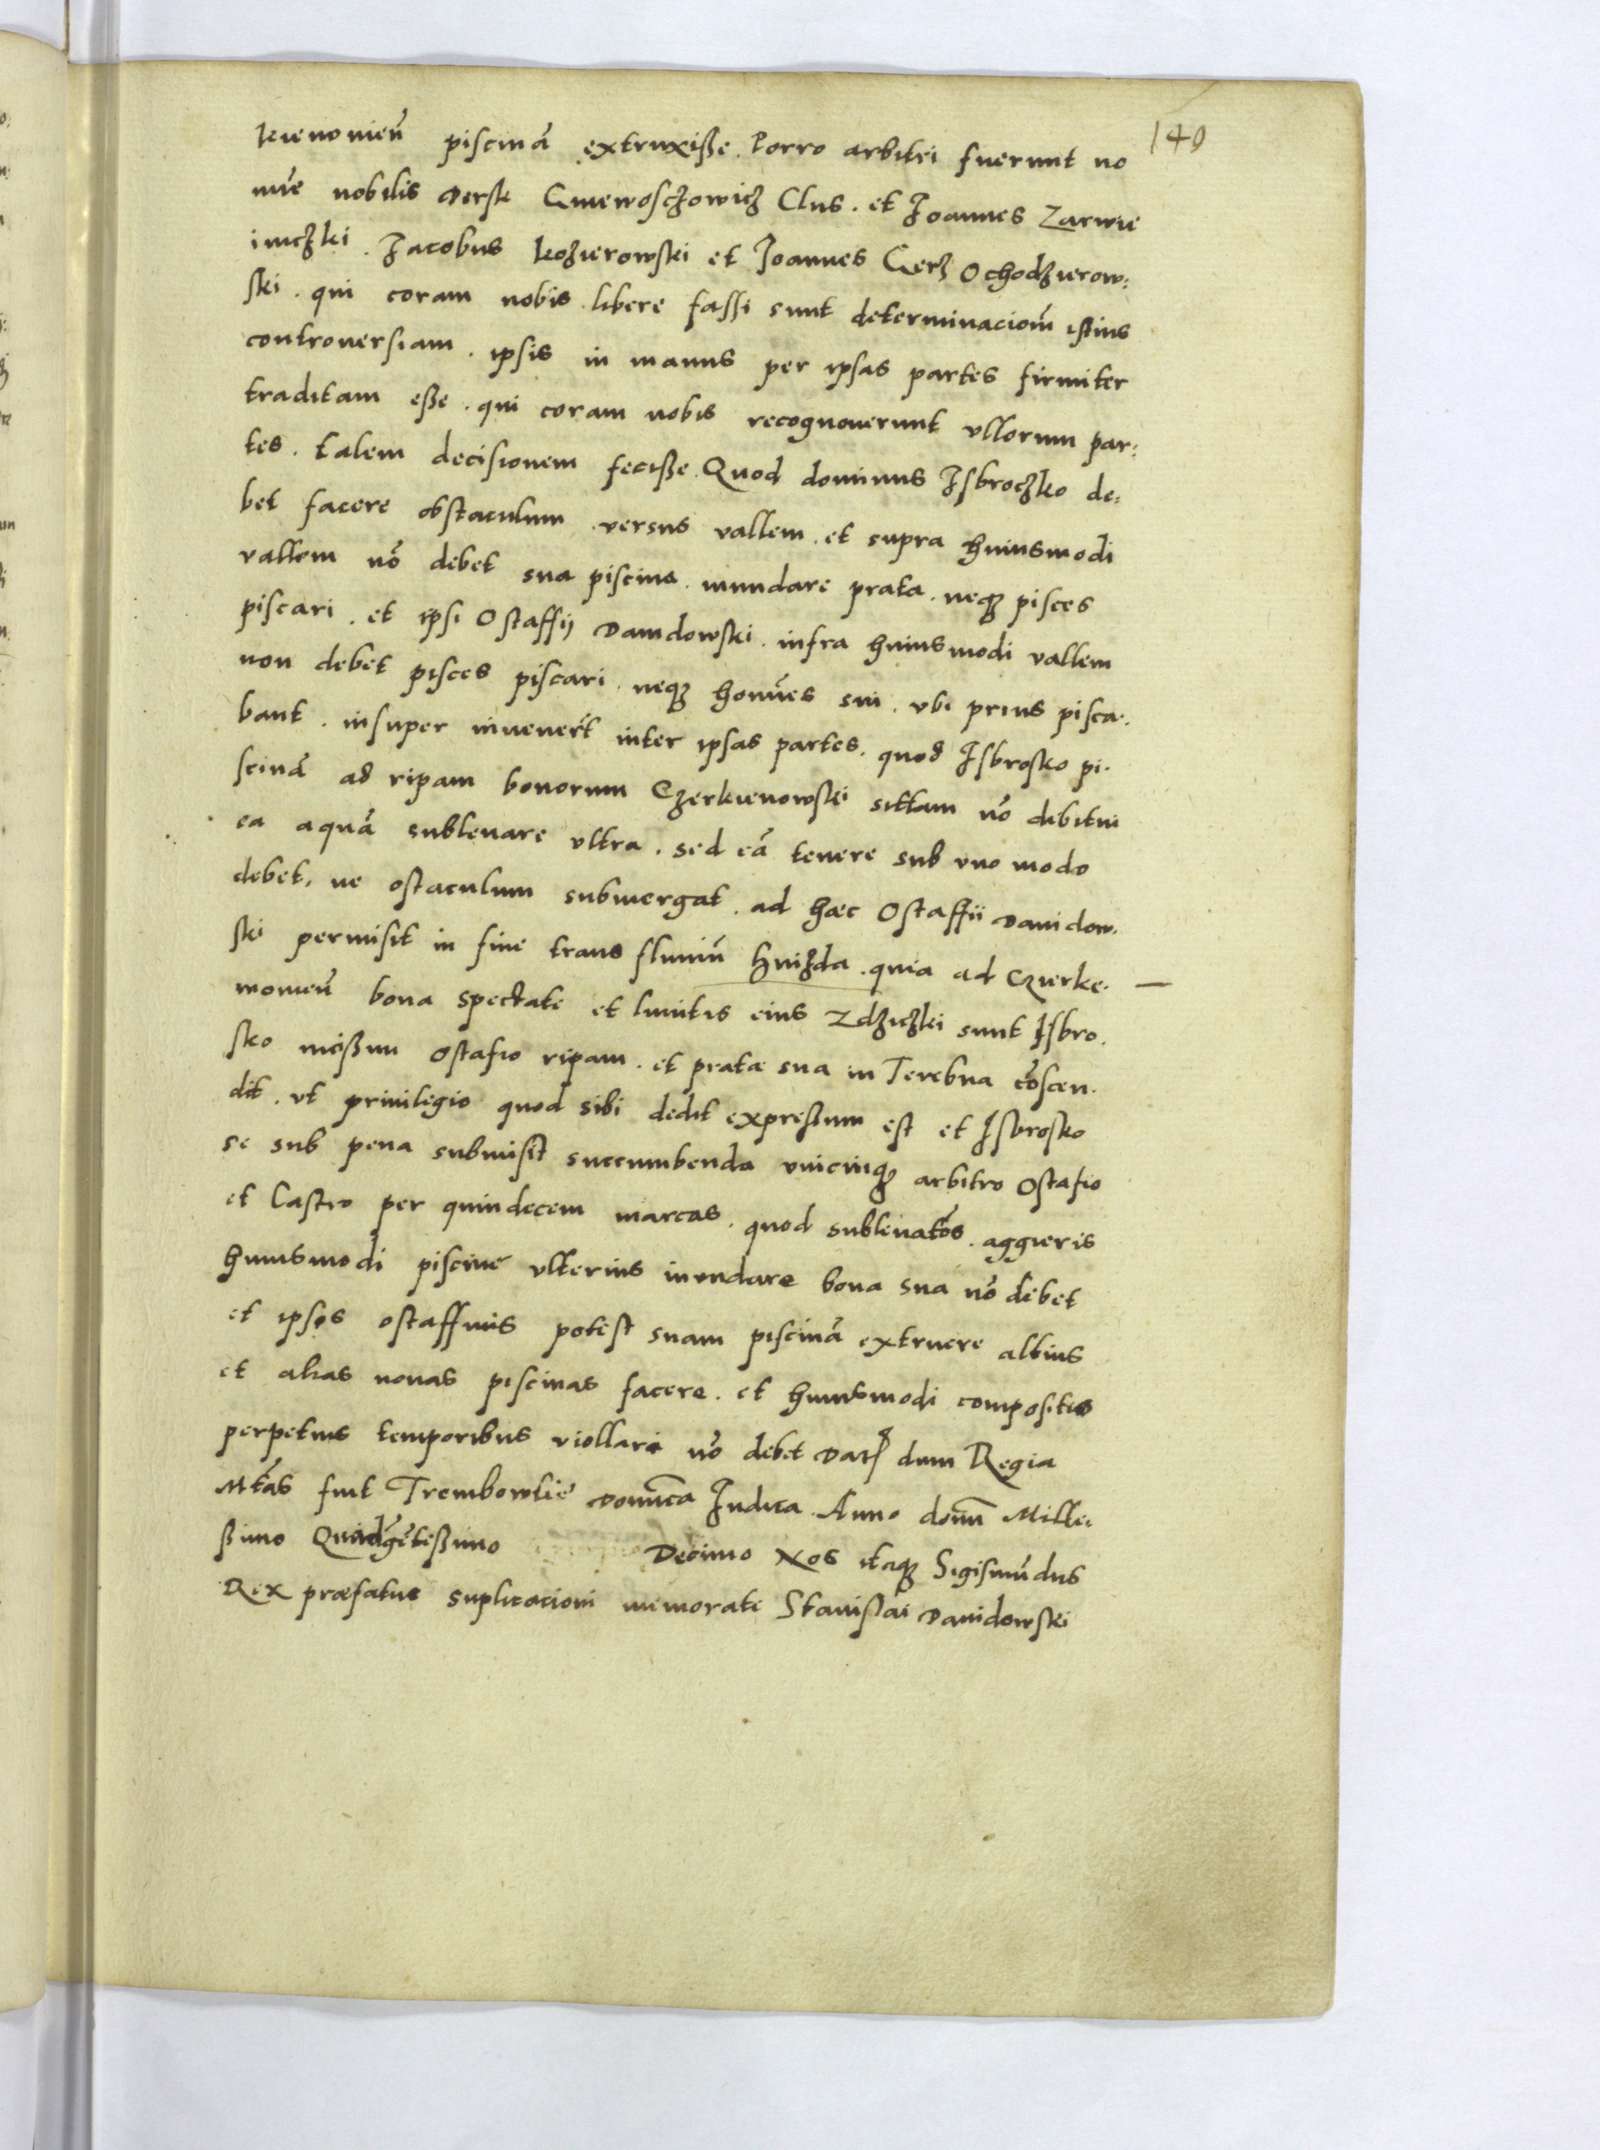 140
kienonień piscinā extruxiße. Porro arbitri fuerunt no
mīe nobilis Derst Gniewoschowicz Clus. et Joannes Zarwie
iniczki. Jacobus kozierowski et Joannes Gerz Ochodzierow:
ski. qui coram nobis libere fassi sunt determinacionē istius
controuersiam. ipsis in manus per ipsas partes firmiter
traditam eße. qui coram nobis recognouerunt vllorum par:
tes. talem decisionem feciße. Quod dominus Isbroczko de:
bet facere obstaculum versus vallem. et supra huiusmodi
vallem nō debet sua piscina. inundare prata. neqz pisces
piscari. et ipsi Ostaffij Dauidowski. infra huiusmodi vallem
non debet pisces piscari. neqz homines sui. vbi prius pisca.
bant. insuper inuenert inter ipsas partes. quod Isbrosko pi.
scinā ad ripam bonorum Czerkienowski sittam nō debitui
ea aquā subleuare vltra. sed eā tenere sub vno modo
debet, ne ostaculum submergat. ad haec Ostaffii Dauidow.
ski permisit in fine trans fluuiū Hnizda. quia ad Czierke. —
wonień bona spectate et limitis eius Zdziczki sunt Isbro.
sko Ostafio ripam. et prata sua in Terebna cōscen.
dit. vt priuilegio quod sibi dedit expreßum est et Isbrosko
se sub pena submisit succumbenda vnicuiqz arbitro Ostafio
et Castro per quindecem marcas. quod subleuatōs. aggieris
huiusmodi piscine vlterius inundare bona sua nō debet
et ipsos ostaffius potest suam piscinā extruere altius
et alias nouas piscinas facere. et huiusmodi compositio
perpetuis temporibus viollari nō debet Datz dum Regia
Mtās fuit Trembowlie Domīca Judica. Anno domī Mille:
ßimo Quidgēteßimo Decimo Nos itaqz Sigismūdus
Rex praefatus suplicacioni memorate Stanislai Dauidowski